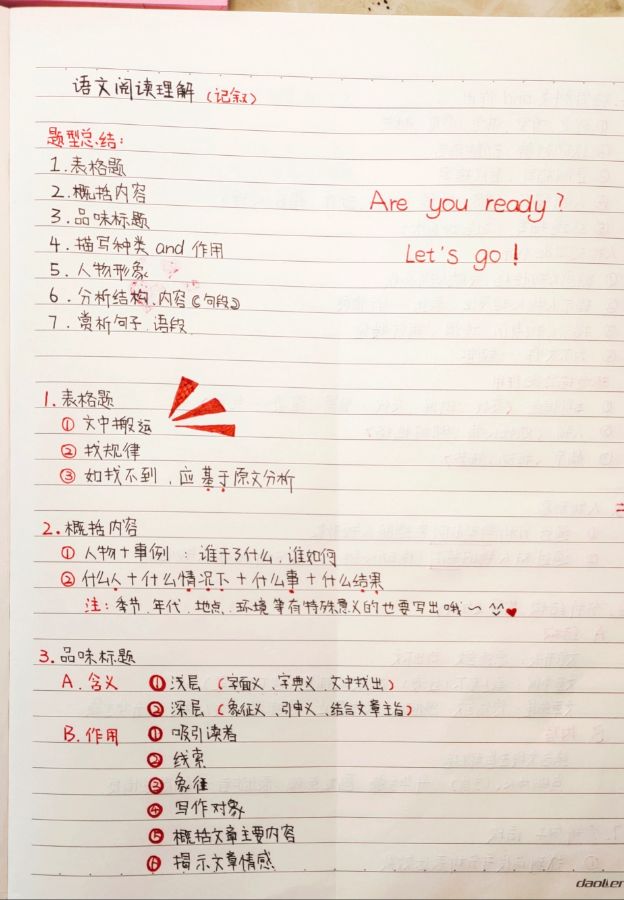 语文阅读理解（记叙）
题型总结：
1.表格题
2.概括内容
3.品味标题
4.描写种类 and 作用
5.人物形象
6.分析结构、内容（句段）
7.赏析句子、语段
Are you ready?
Let's go!
1.表格题
① 文中搬运
② 找规律
③ 如找不到，应基于原文分析
2.概括内容
① 人物+事例：谁干了什么，谁如何
② 什么人+什么情况下+什么事+什么结果
注：季节、年代、地点、环境等有特殊意义的也要写出哦~
3.品味标题
A.含义 ❶浅层（字面义、字典义、文中找出）
❷深层（象征义、引申义、结合文章主旨）
B.作用 ❶吸引读者
❷线索
❸象征
❹写作对象
❺概括文章主要内容
❻揭示文章情感